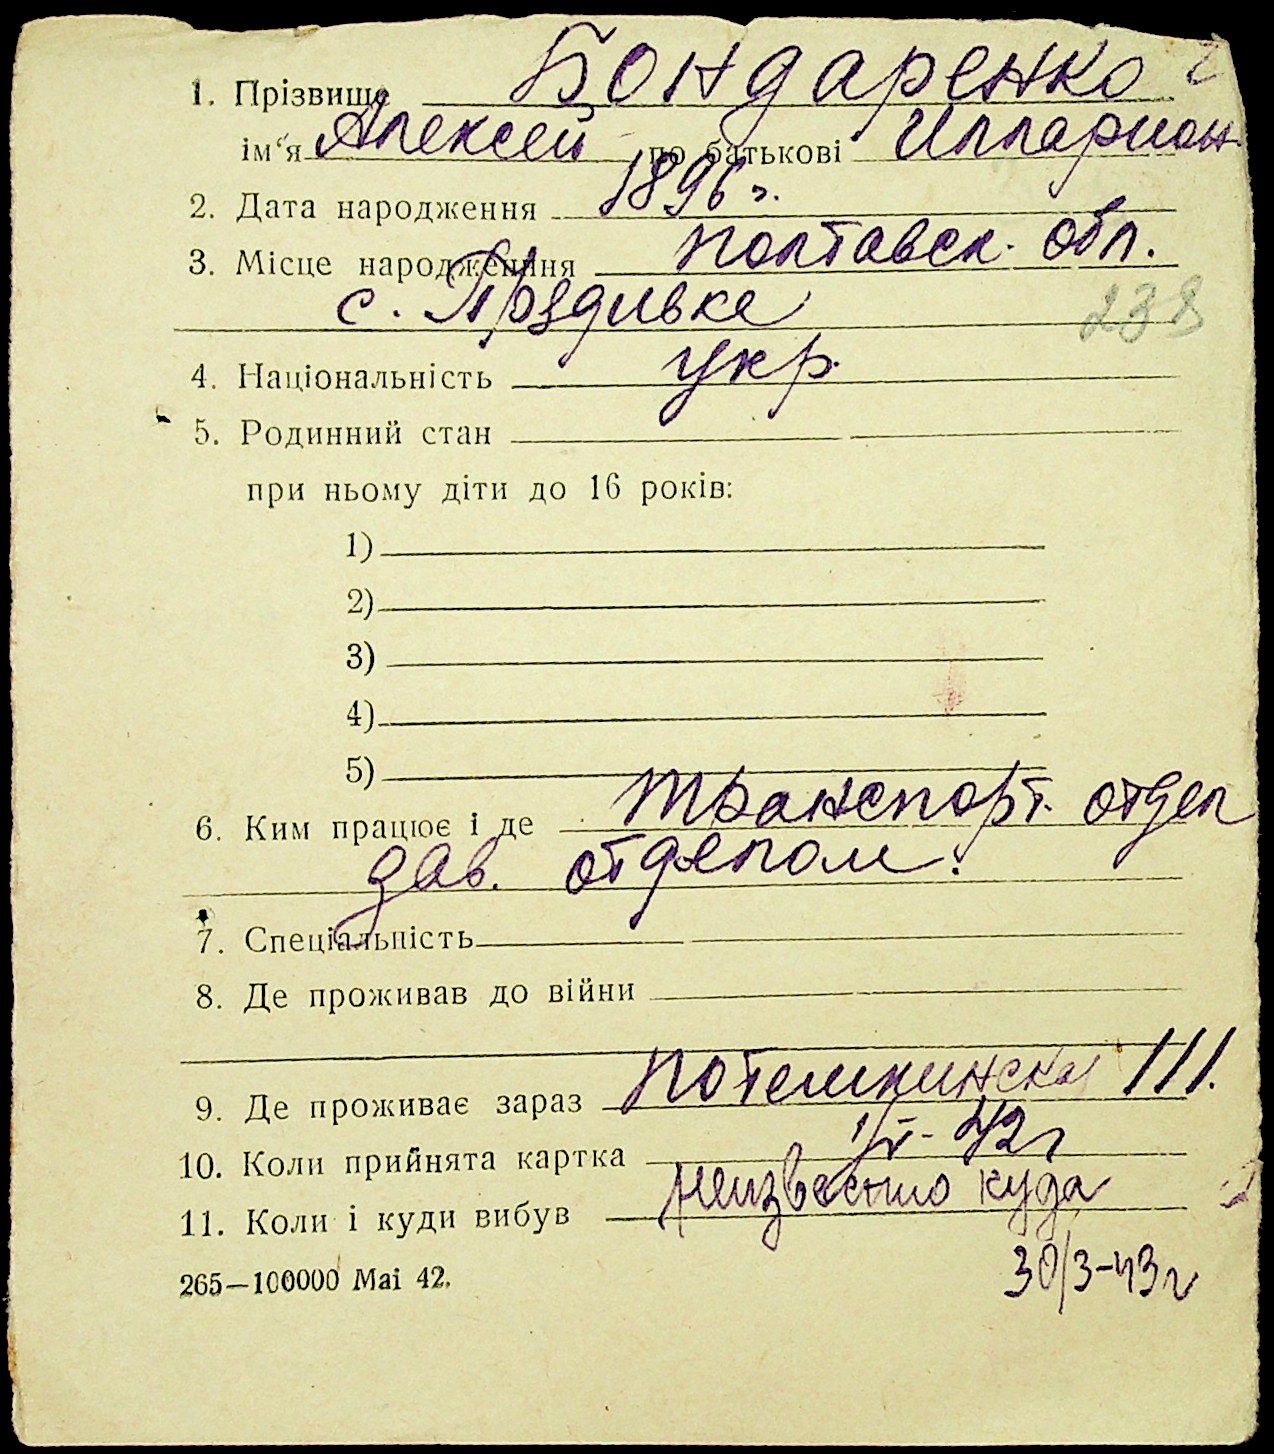 1. Прізвище Бондаренко
ім‘я Алексей по батькові Илларион.
2. Дата народження 1896 г.
3. Місце народження Полтавск. обл.
с.
238
4. Національність укр.
5. Родинний стан
при ньому діти до 16 років:
1)
2)
3)
4)
5)
6. Ким працює і де Транспорт. отдел
зав. отделом.
7. Спеціальність
8. Де проживав до війни
9. Де проживає зараз Потемкинская 111.
10. Коли прийнята картка 1/V-42г
11. Коли і куди вибув неизвестно куда
30/3-43г
265—100000 Mai 42.